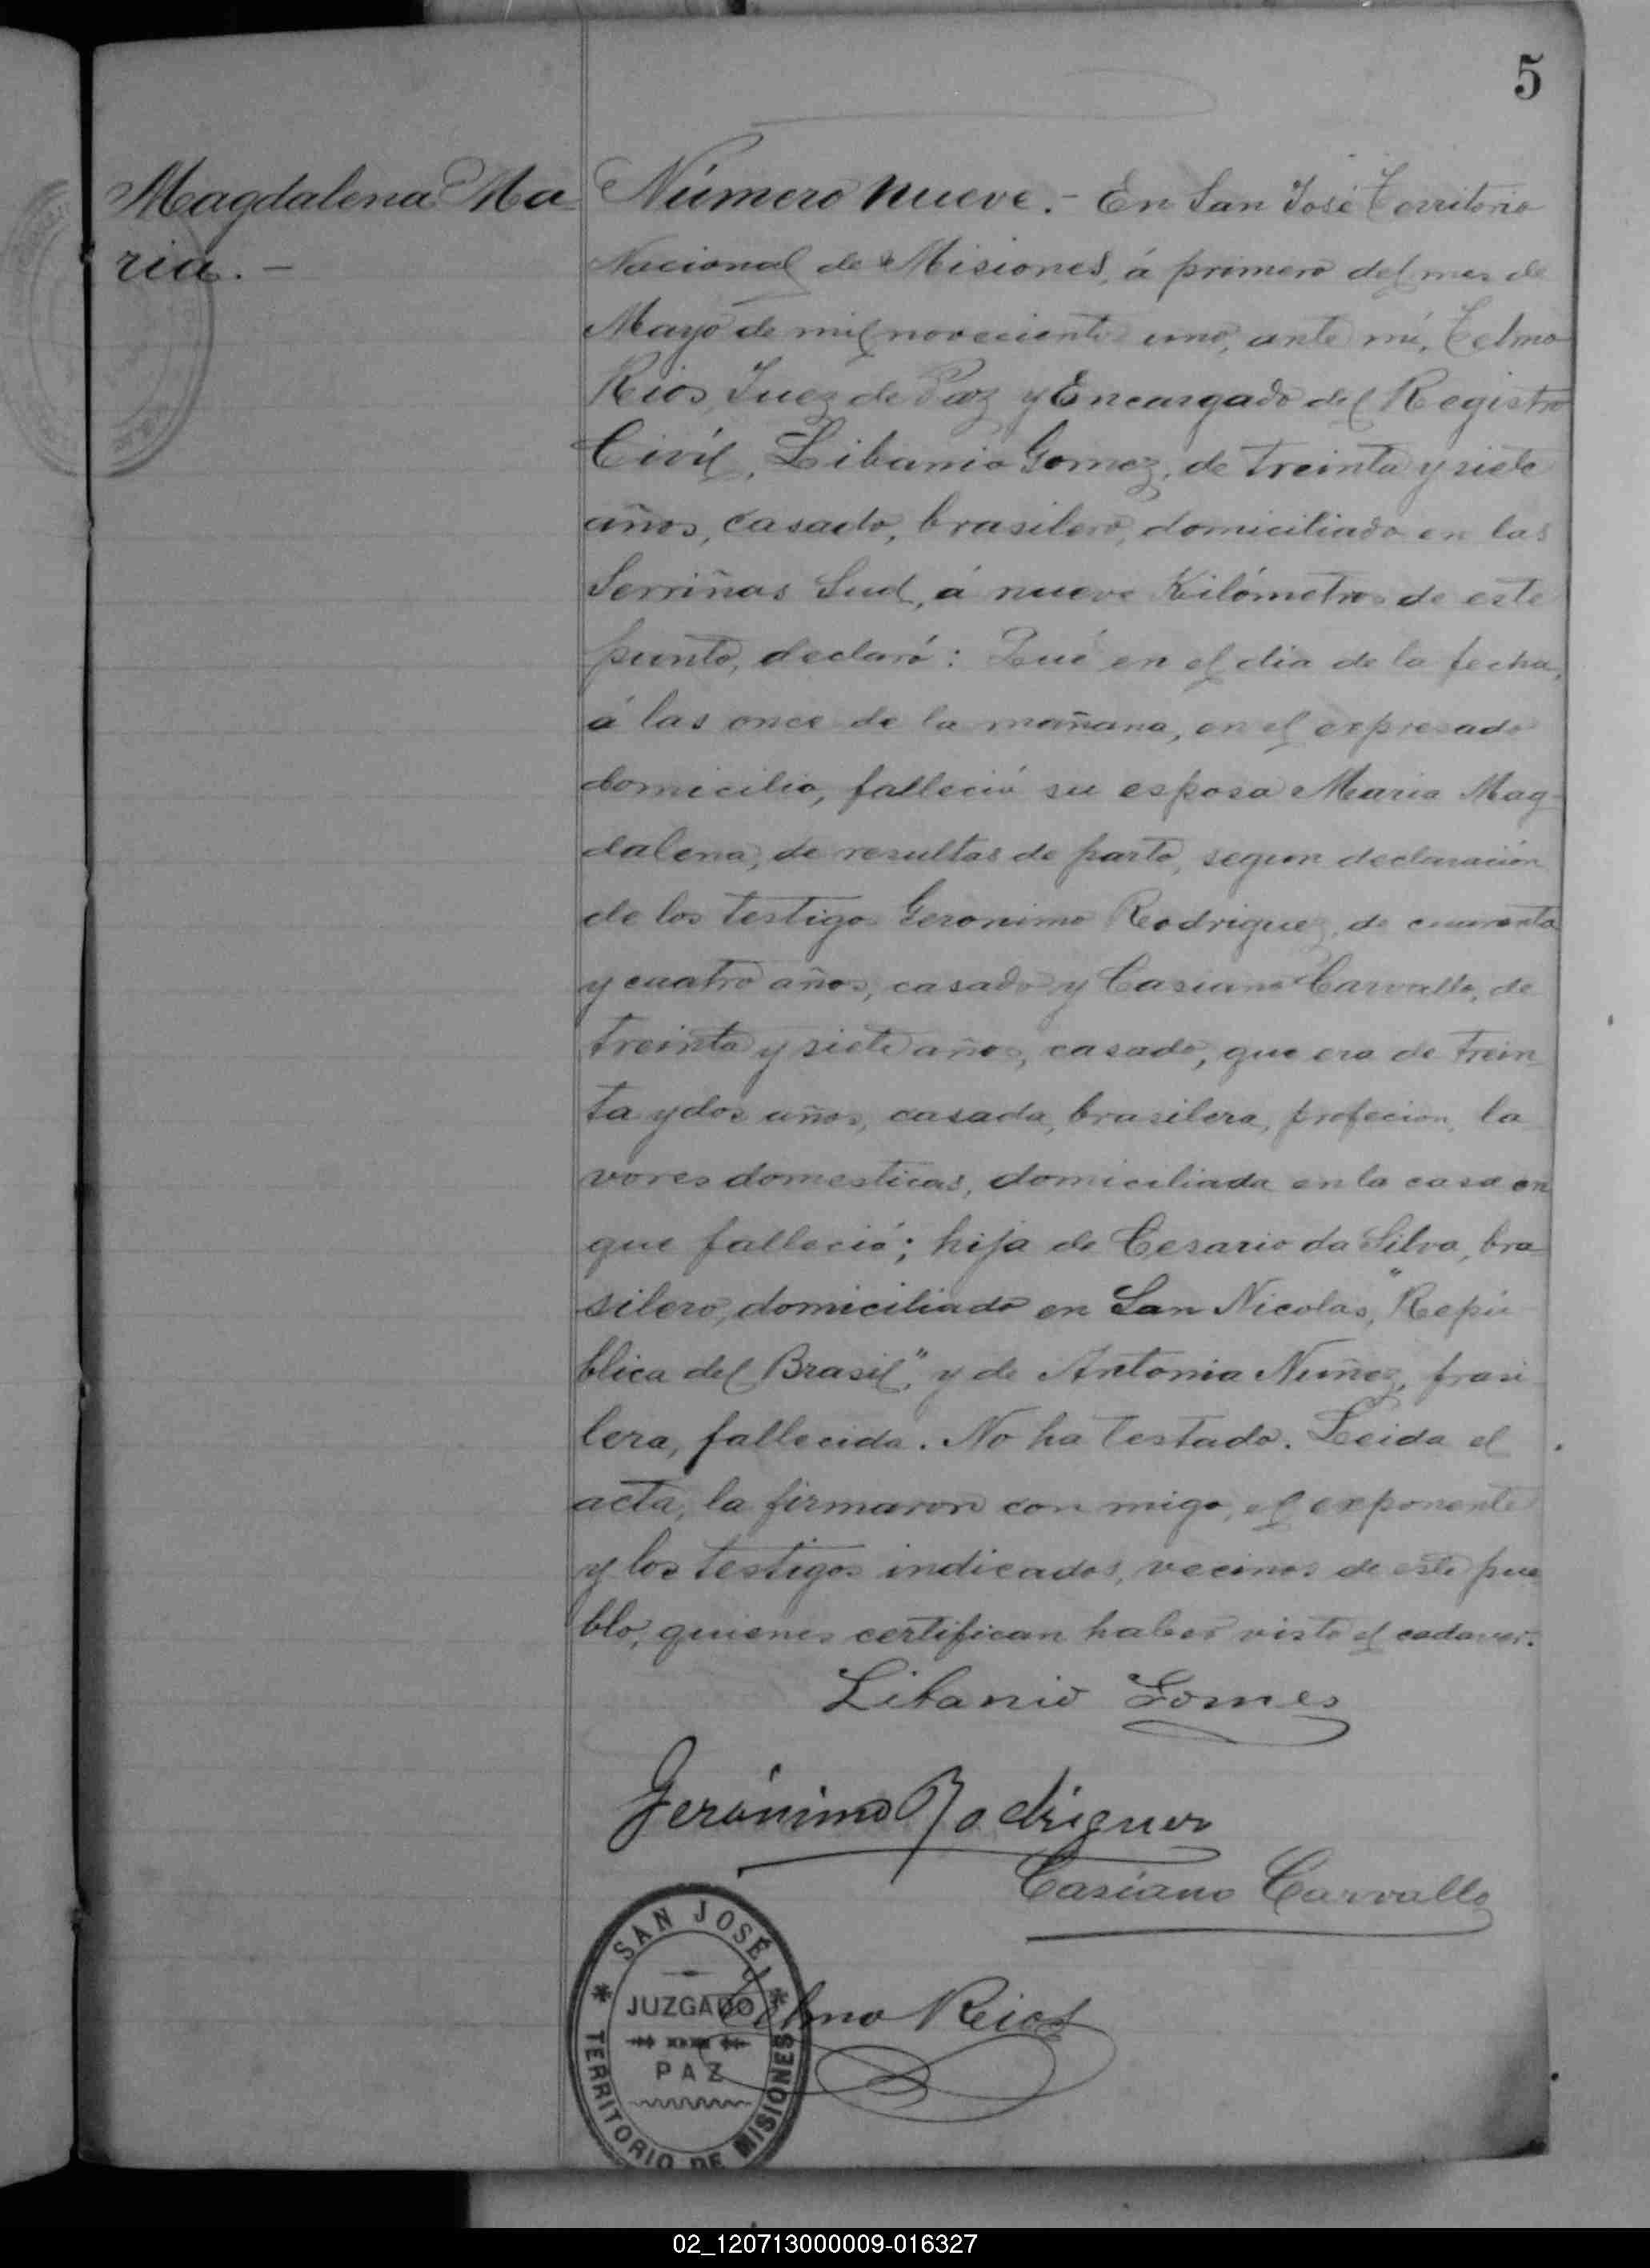 5
Magdalena Ma
ria. —
Número nueve. - En San José Territorio
Nacional de Misiones, á primero del mes de
Mayo de mil novecientos uno, ante mí, Telmo
Rios, Juez de Paz y Encargado del Registro
Civíl, Libanio Gomez, de treinta y siete
años, casado, brasilero, domiciliado en las
Serriñas Sud, á nueve Kilómetros de este
punto, declaró: Qué en el dia de la fecha,
á las once de la mañana, en el expresado
domicilio, falleció su esposa Maria Mag-
dalena, de resultas de parto, segun declaración
de los testigos Geronimo Rodriguez, de cuarenta
y cuatro años, casado y Casiano Carvallo, de
treinta y siete años, casado, que era de trein
ta y dos años, casada, brasilera, profecion, la
vores domesticas, domiciliada en la casa en
que falleció; hija de Cesario da Silva, bra-
silero, domiciliado en San Nicolas, "Repú-
blica del Brasil," y de Antonia Nuñez, frasi-
lera, fallecida. No ha testado. Leida el
acta, la firmaron con migo, el exponente
y los testigos indicados, vecinos de este pue
blo, quienes certifican haber visto el cadaver.
Libanio Gomes
Gerónimo Rodriguez
Casiano Carvallo
Telmo Rios
SAN JOSÉ
JUZGADO
PAZ
TERRITORIO DE MISIONES
02_120713000009-016327